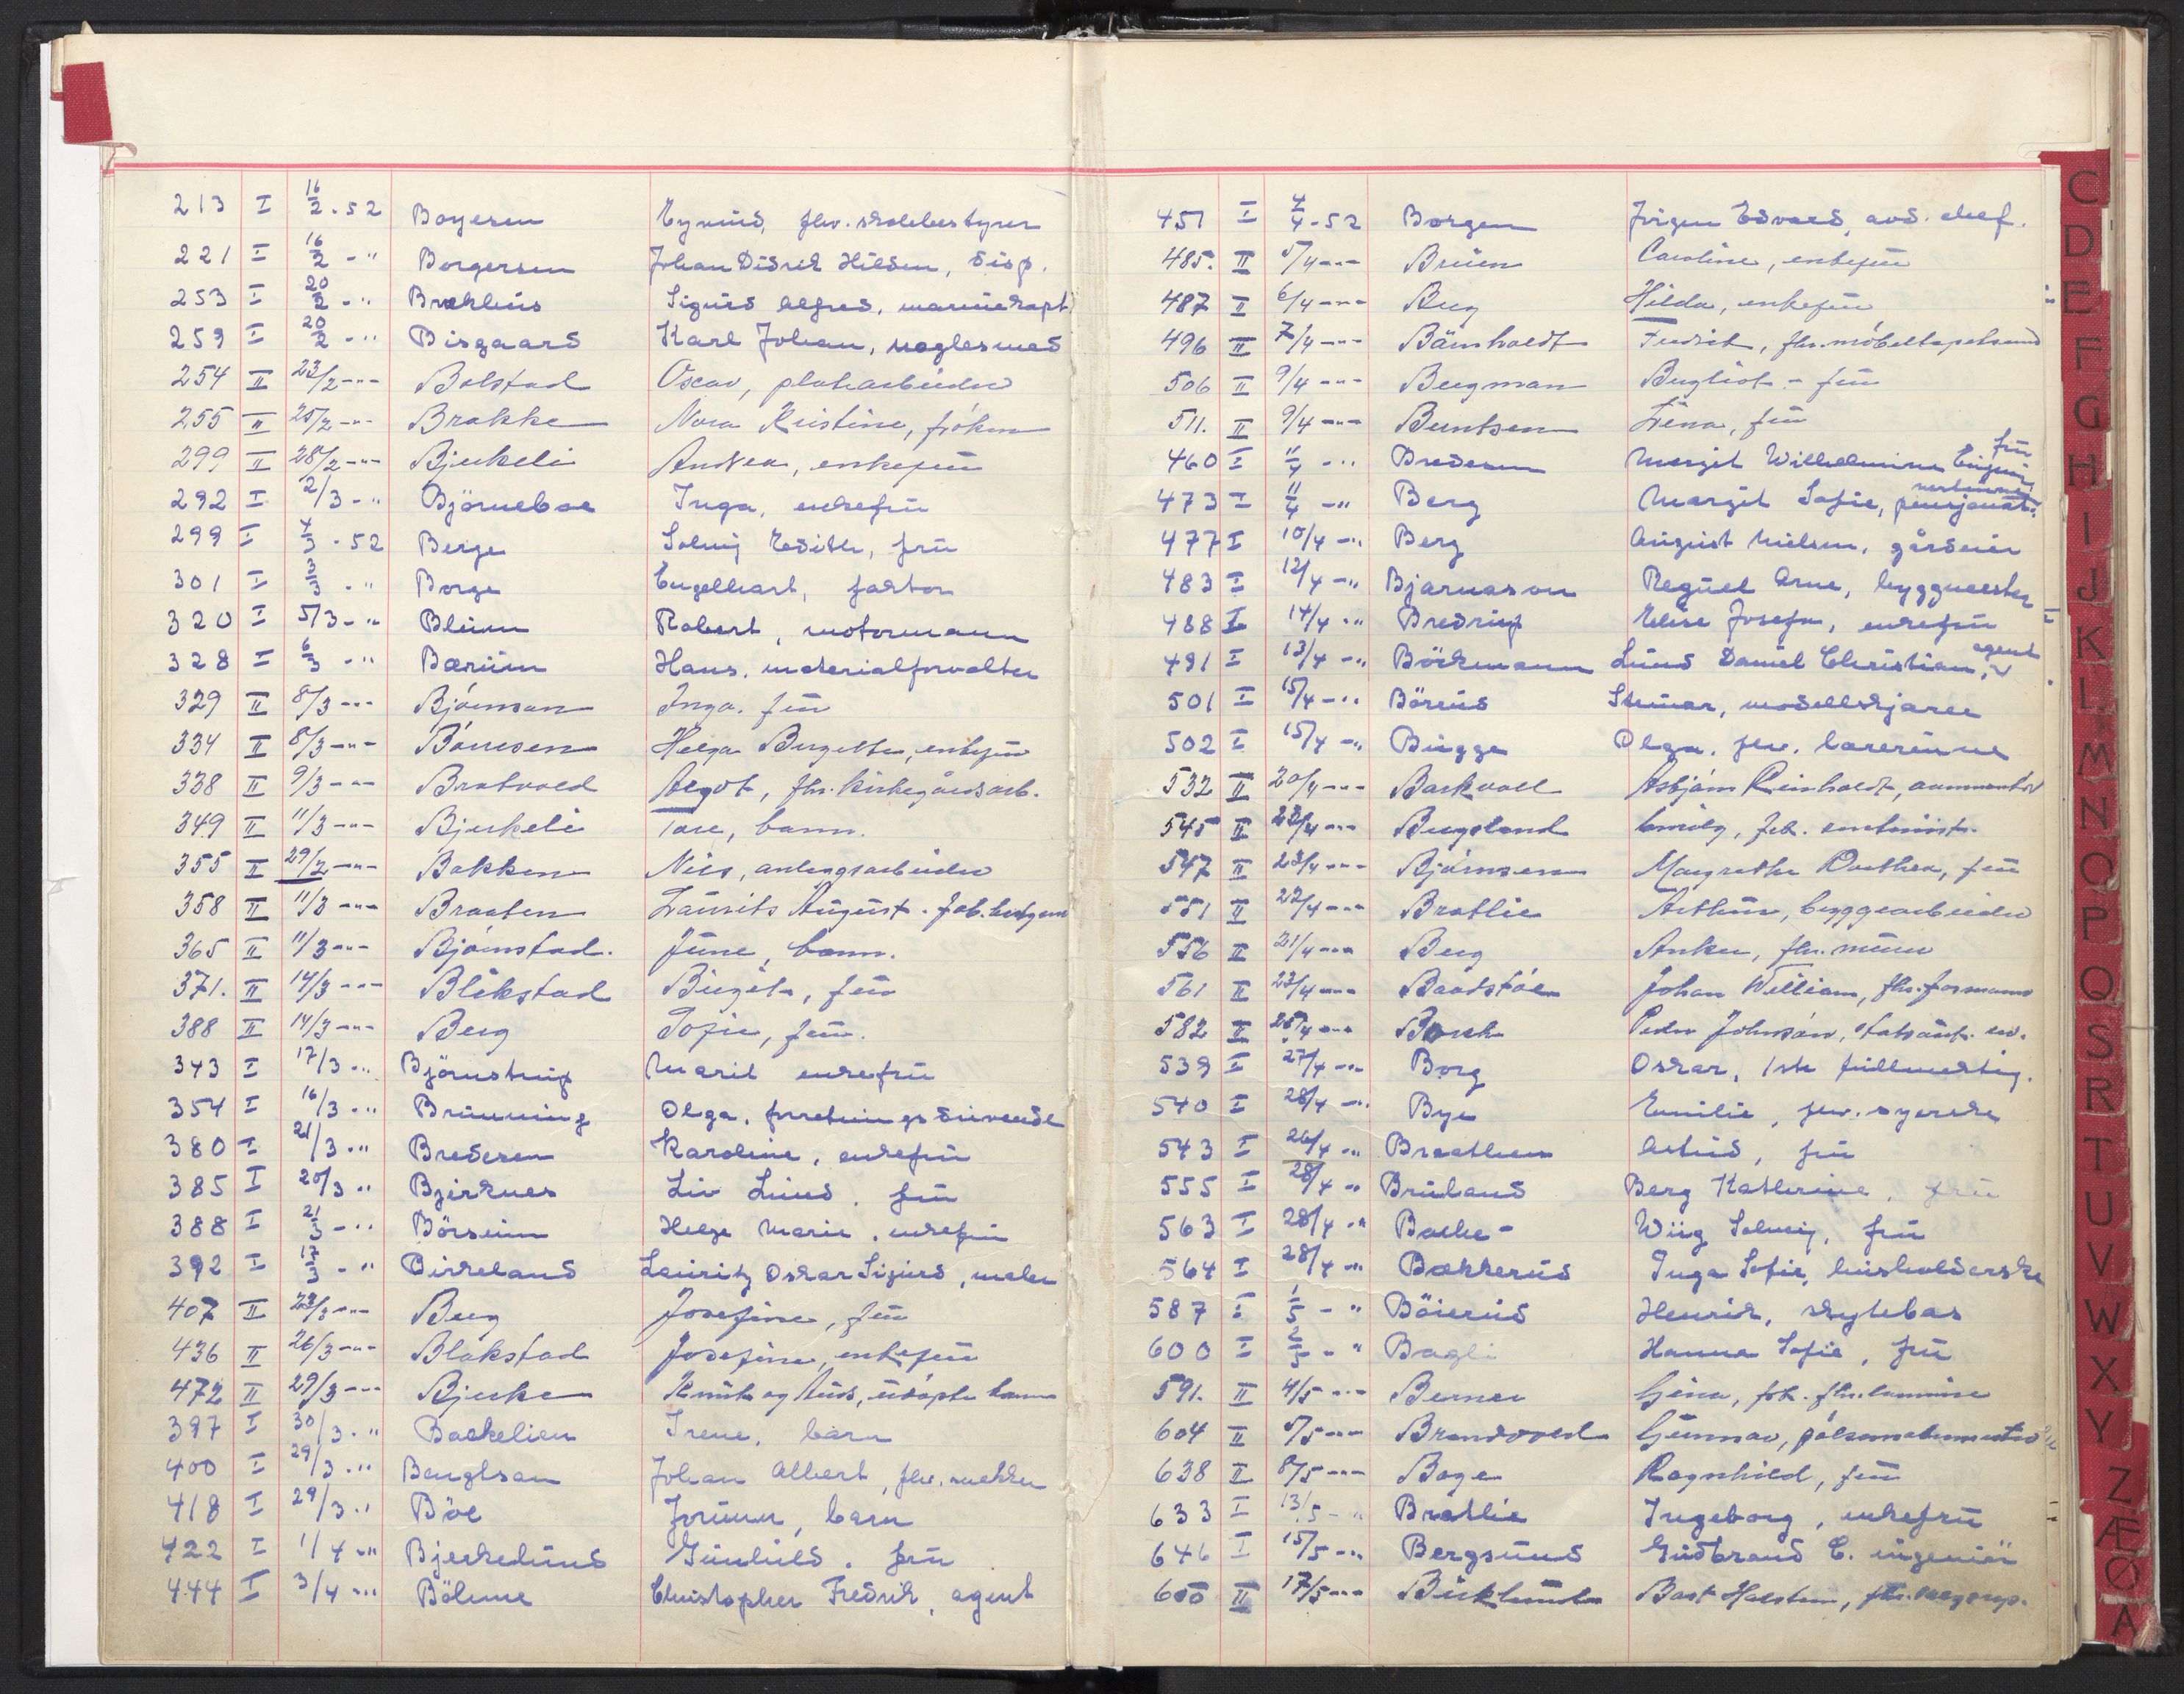 213 I 16/2-52 Boyesen Eyvind, fhv. skolebestyrer
221 I 16/2 -" Borgersen Johan Didrik Hilsen, disp.
253 I 20/2 -" Brækhus Sigurd Alfred, marinekapt.
259 I 20/2 -" Bisgaard Karl Johan, naglesmed
254 II 23/2 -"- Bolstad Oscar, platearbeider
255 II 25/2 -"- Brakke Nora Kristine, frøken
299 II 28/2 -"- Bjerkeli Andrea, enkefru
292 I 2/3 -" Björneboe Inga, enkefru
299 I 4/3 - 52 Berge Solveig Edith, fru
301 I 3/3 -" Borge Engelhart, faktor
320 I 5/3 -" Bleien Robert, motormann
328 I 6/3 -" Bærum Hans, materialforvalter
329 II 8/3 -"- Bjørnson Inga. fru
334 II 8/3 -"- Børresen Helga Bergette, enkefru
338 II 9/3 -"- Bratvold Algot, fhv. kirkegårdsarb.
349 II 11/3 -"- Bjerkeli Tore, barn.
355 II 29/2 -"- Bakken Nils, anleggsarbeider
358 II 11/3 -"- Braaten Laurits August.
365 II 11/3 -"- Bjørnstad. June, barn.
371. II 14/3 -"- Blikstad Birgit, fru
388 II 14/3 -"- Berg Sofie, fru.
343 I 17/3 -" Björnstrup Marit enkefru
354 I 16/3 -" Brünning Olga, forretningsdrivende
380 I 21/3 -" Bredesen Karoline, enkefru
385 I 20/3 -" Bjerknes Liv Lund. fru
388 I 21/3 -" Börseum Helga Marie, enkefru
392 I 17/3 -" Birkeland Lauritz Oskar Sigurd, maler
407 II 23/3 -"- Berg Josefine, fru
436 II 26/3 -"- Blakstad Josefine, enkefru
472 II 29/3 -"- Bjerke Knut og Nils, udøpte barn
397 I 30/3 -" Backelien Irene, barn
400 I 29/3 -" Bengtson Johan Albert, fhv. snekker
418 I 29/3 -" Böe Jorunn, barn
422 I 1/4 -" Bjerkelund Gunhild. fru
444 I 3/4 -" Böhme Christopher Fredrik, agent
451 I 4/4 - 52 Borgen Jörgen Edvard, avd. chef.
485. II 5/4 -"- Bruen Caroline, enkefru
487 II 6/4 -"- Berg Hilda, enkefru
496 II 7/4 -"- Bärnholdt Fredrik, fhv. møbeltapetserer
506 II 9/4 -"- Bergman Bergliot - fru
511. II 9/4 -"- Berntsen Lena, fru
460 I 11/4 -" Bredesen Margit Wilhelmine fru
473 I 11/4 -" Berg Margit Sofie, pensjonat-vertinne
477 I 10/4 -" Berg August Nielsen, gårdeier
483 I 12/4 -" Bjarnason Raguel Arne, byggmester
488 I 14/4 -" Bredrup Elise Josefa, enkefru
491 I 13/4 -" Böckmann Lund Daniel Christian, agent
501 I 15/4 -" Börud Steinar, modellskjærer
502 I 15/4 -" Bugge Olga. fhv. lærerinne
532 II 20/4 -"- Barkvoll Asbjørn Reinholdt,
545 II 22/4 -"- Bergsland
547 II 23/4 -"- Bjørnsen Margrethe Dorthea, fru
551 II 22/4 -"- Bratlie Arthur, byggearbeider
556 II 21/4 -"- Berg Anker, fhv. murer
561 II 23/4 -"- Baadstøen Johan William, fhv. formann
582 II 25/4 -"- Peder Johnsøn,
539 I 27/4 -" Borg Oskar, 1ste fullmektig.
540 I 28/4 -" Bye Emilie, fhv. syerske
543 I 26/4 -" Braathen Astrid, fru
555 I 28/4 -" Bruland Berg Katherine, fru
563 I 28/4 -" Bache - Wiig Solveig, fru
564 I 28/4 -" Bækkerud Inga Sofie, husholderske
587 I 1/5 -" Böierud Henrik, skytebas
600 I 2/5 -" Bagli Hanna Sofie, fru
591. II 4/5 -"- Berner Gina, frk.
604 II 5/5 -"- Brandvold Gunnar,
638 II 8/5 -"- Boge Ragnhild, fru
633 I 13/5 -" Bratlie Ingeborg, enkefru
646 I 15/5 -" Bergsund Gudbrand C. ingeniör
655 II 17/5 -"- Bircklund
C
D
E
F
G
H
I
J
K
L
M
N
O
P
Q
S
R
T
U
V
W
X
Y
Z
Æ
Ø
A